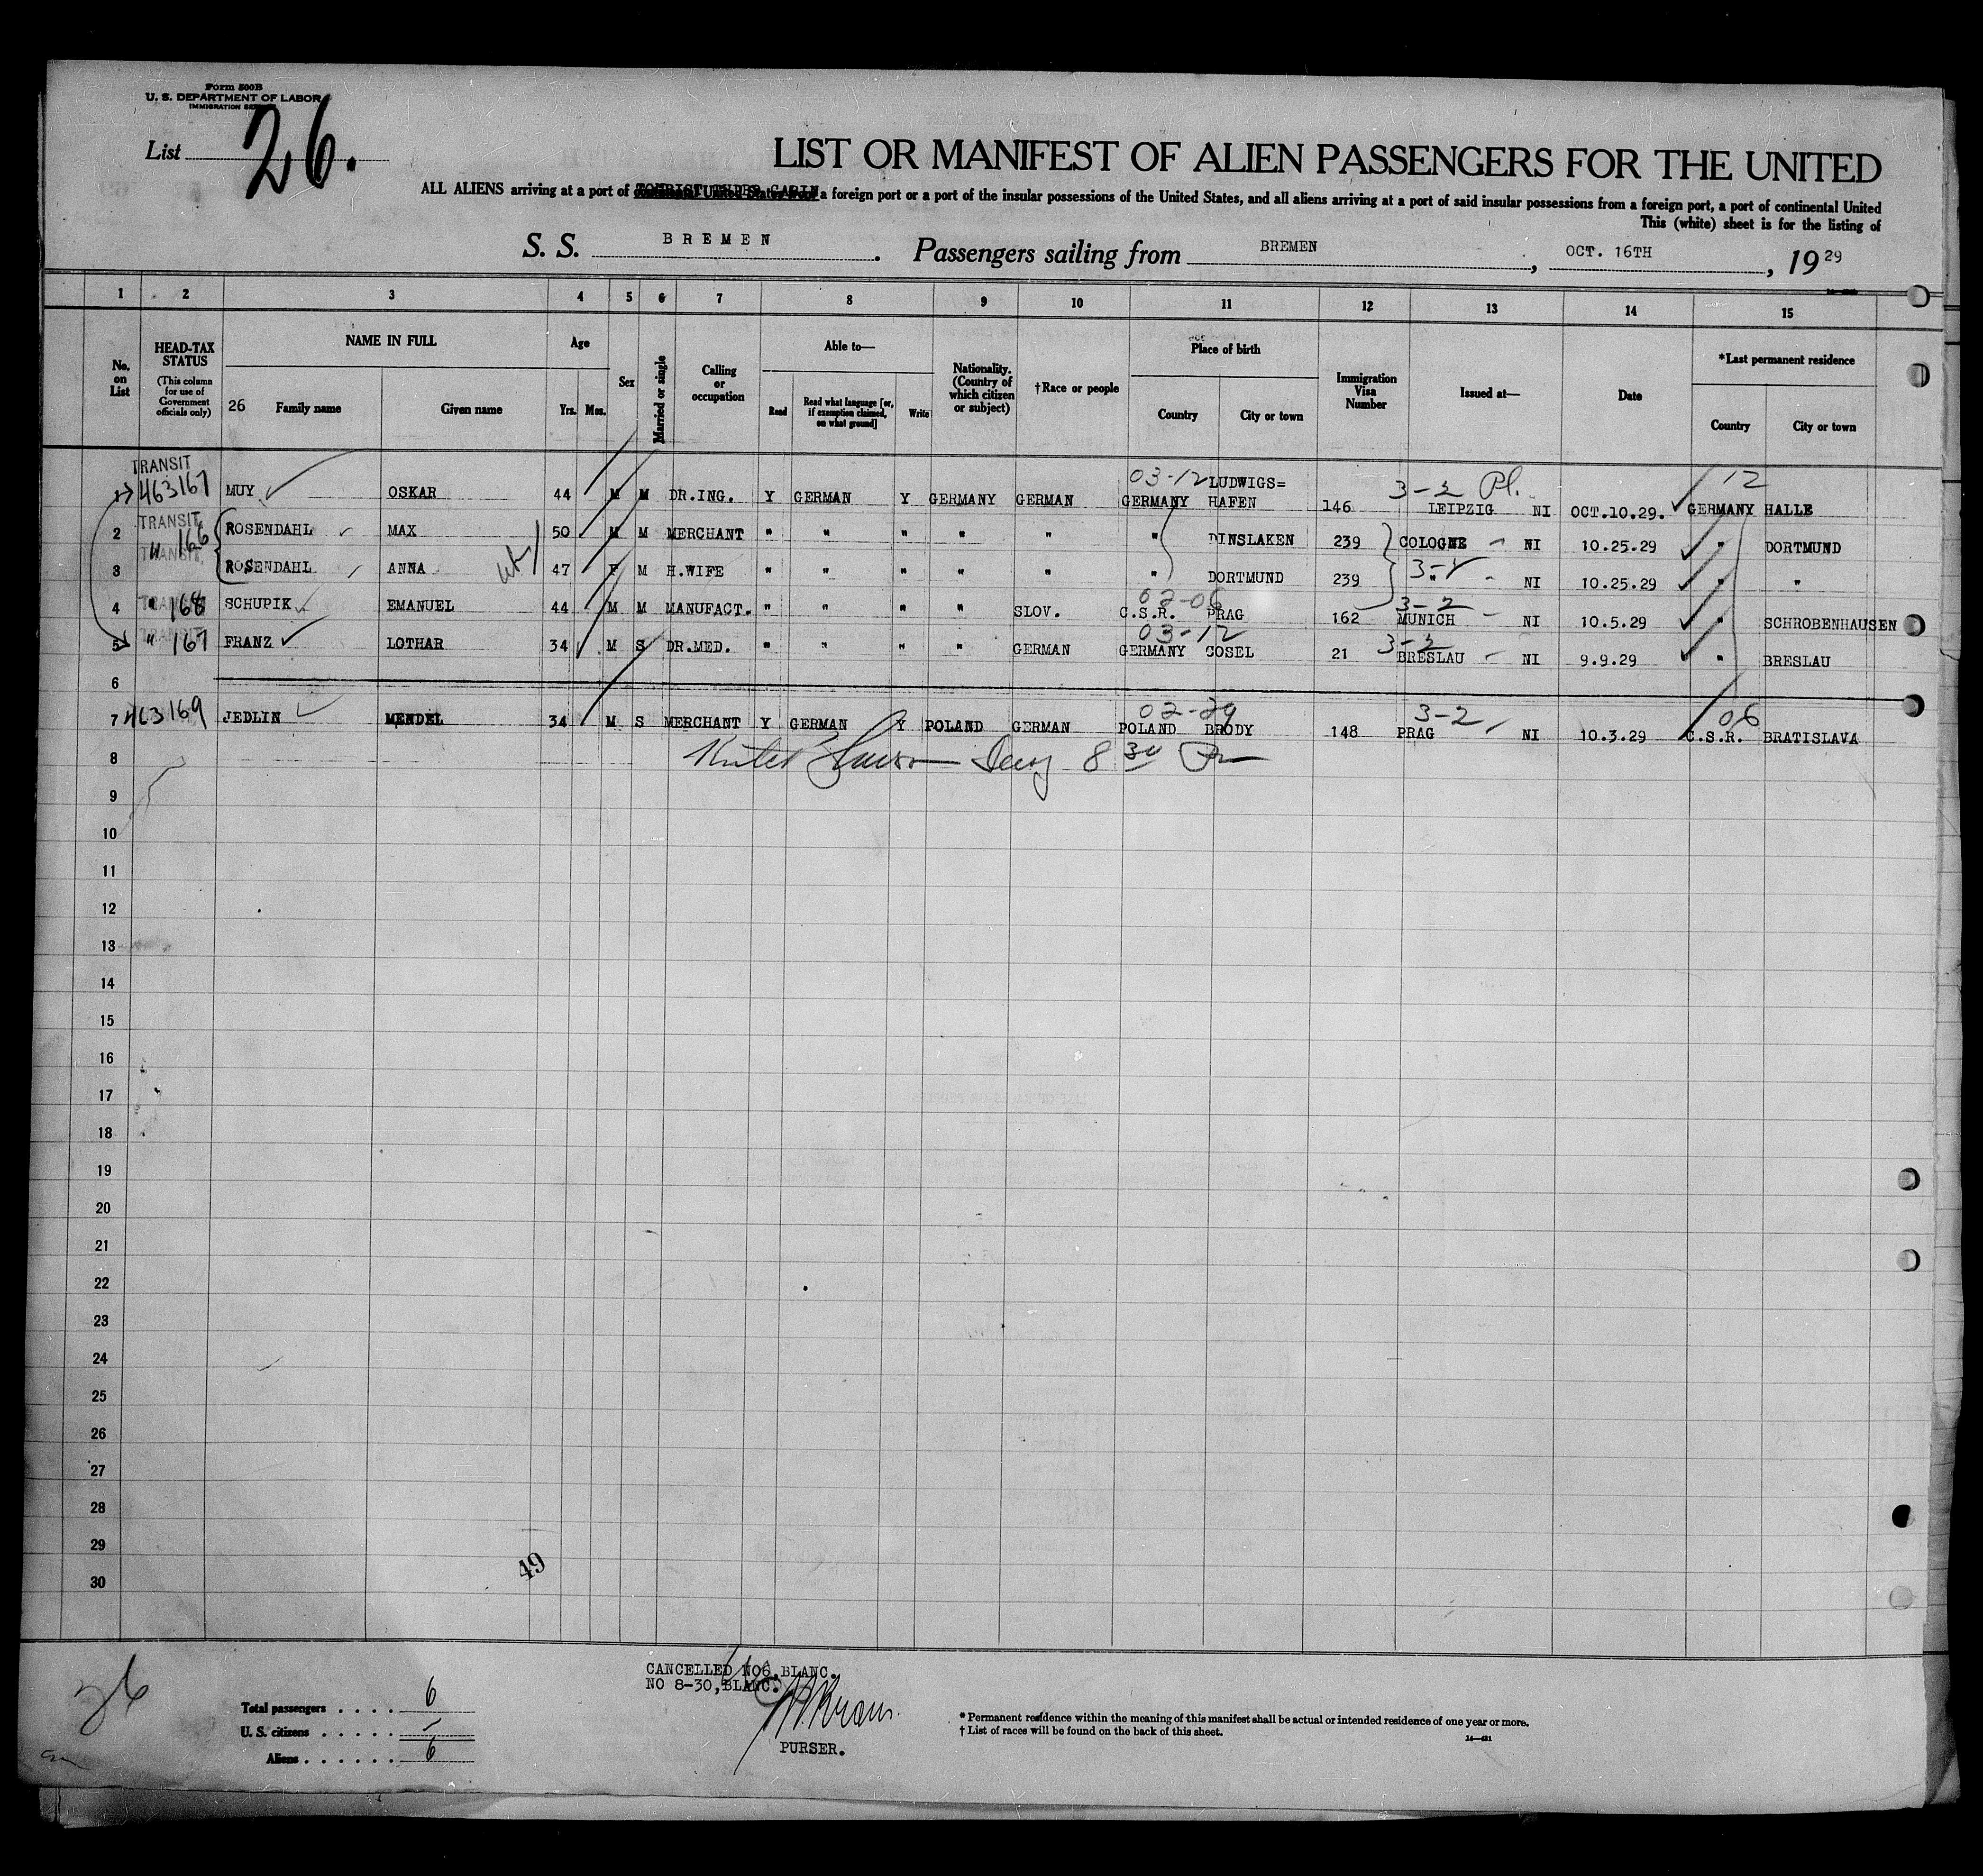 Form 500B
U. S. DEPARTMENT OF LABOR
IMMIGRATION
List 26.
LIST OR MANIFEST OF ALIEN PASSENGERS FOR THE UNITED
ALL ALIENS arriving at a port of TOURIST THIRD CABIN a foreign port or a port of the insular possessions of the United States, and all aliens arriving at a port of said insular possessions from a foreign port, a port of continental United
This (white) sheet is for the listing of
S. S. BREMEN. Passengers sailing from BREMEN, OCT. 16TH, 1929
1 2 3 4 5 6 7 8 9 10 11 12 13 14 15
No. on List
HEAD-TAX STATUS
(This column for use of Government officials only)
NAME IN FULL
26 Family name Given name
Age
Yrs. Mos.
Sex
Married or single
Calling or occupation
Able to—
Read
Read what language [or, if exemption claimed, on what ground]
Write
Nationality. (Country of which citizen or subject)
†Race or people
Place of birth
Country City or town
Immigration Visa Number
Issued at—
Date
*Last permanent residence
Country City or town
TRANSIT 463167 MUY OSKAR 44 M M DR.ING. Y GERMAN Y GERMANY GERMAN 03-12 GERMANY LUDWIGS= HAFEN 146 3-2 Pl. LEIPZIG NI OCT.10.29. 12 GERMANY HALLE
2 TRANSIT " 166 ROSENDAHL MAX 50 M M MERCHANT " " " " " " DINSLAKEN 239 COLOGNE NI 10.25.29 " DORTMUND
3 TRANSIT ROSENDAHL ANNA 47 F M H.WIFE " " " " " " DORTMUND 239 " NI 10.25.29 " "
4 TRANSIT " 168 SCHUPIK EMANUEL 44 M M MANUFACT. " " " " SLOV. 02-06 C.S.R. PRAG 162 3-2 MUNICH NI 10.5.29 " SCHROBENHAUSEN
5 TRANSIT " 167 FRANZ LOTHAR 34 M S DR.MED. " " " " GERMAN 03-12 GERMANY COSEL 21 3-2 BRESLAU NI 9.9.29 " BRESLAU
6
7 463169 JEDLIN MENDEL 34 M S MERCHANT Y GERMAN Y POLAND GERMAN 02-29 POLAND BRODY 148 3-2 PRAG NI 10.3.29 06 C.S.R. BRATISLAVA
8 8 30
9
10
11
12
13
14
15
16
17
18
19
20
21
22
23
24
25
26
27
28
29
30
49
26
CANCELLED NO6,BLANC.
NO 8-30,BLANC.
PURSER.
Total passengers . . . . 6
U. S. citizens . . . . . –
Aliens . . . . . . 6
* Permanent residence within the meaning of this manifest shall be actual or intended residence of one year or more.
† List of races will be found on the back of this sheet.